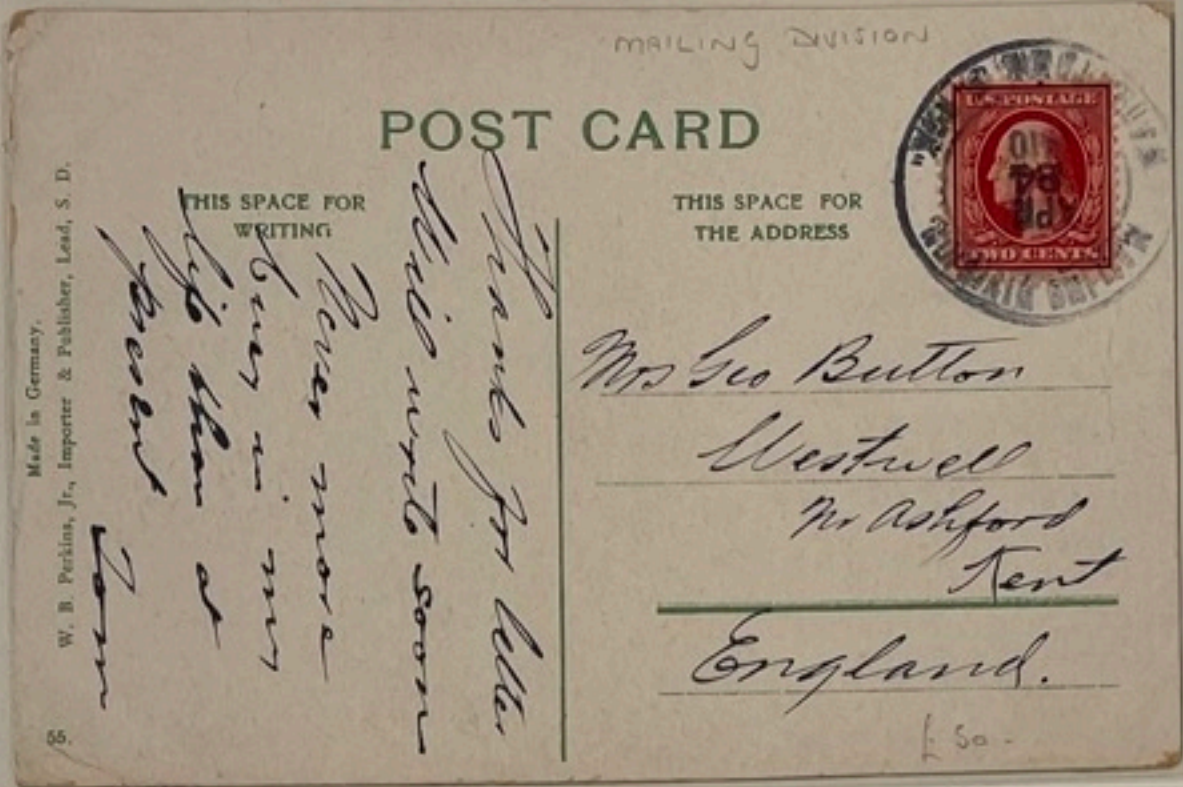 MAILING DIVISION
POST CARD
THIS SPACE FOR
WRITING
THIS SPACE FOR
THE ADDRESS
U.S. POSTAGE
TWO CENTS
APR
24
MAILING DIVISION
Thanks for letter
Will write soon
Never more
busy in my
life than at
present
Tom
Mrs Geo Button
Westwell
Nr Ashford
Kent
England.
£50-
Made in Germany.
W. B. Perkins, Jr., Importer & Publisher, Lead, S. D.
55.